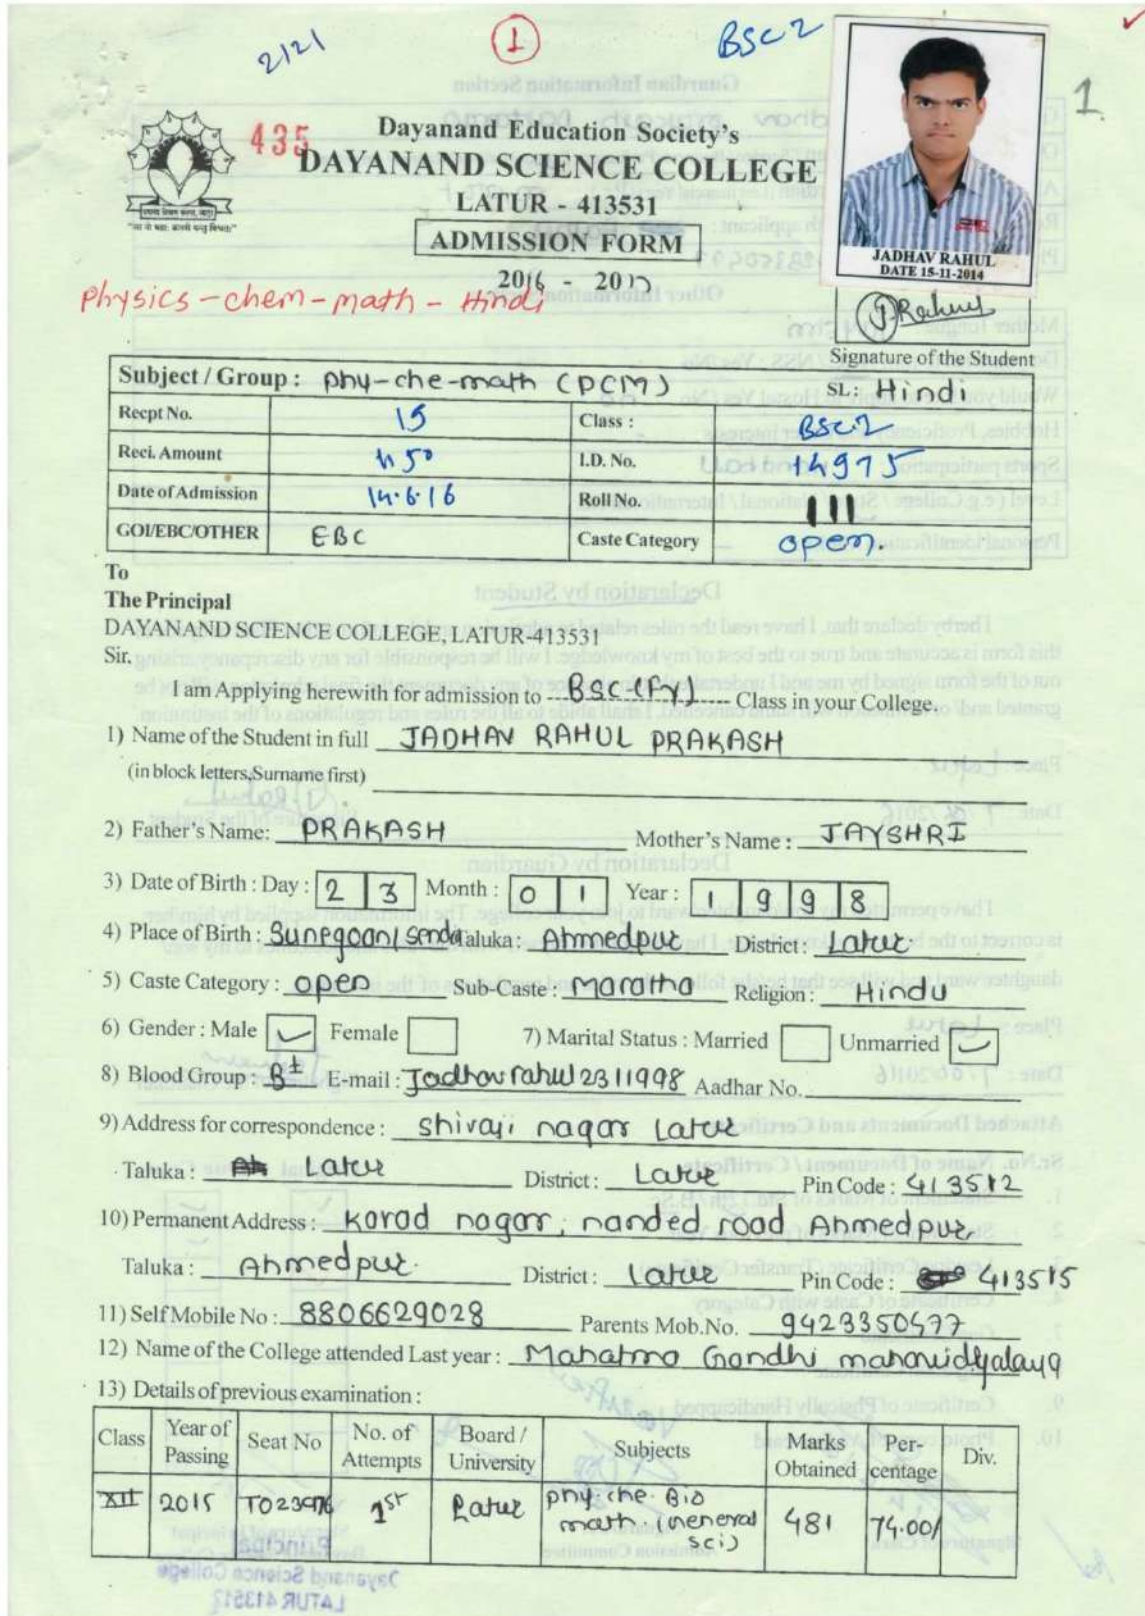 2/21
1
BSC 2
1
435
Dayanand Education Society's
DAYANAND SCIENCE COLLEGE
LATUR - 413531
ADMISSION FORM
2016 - 2017
Physics-chem-math-Hindi
JADHAV RAHUL
DATE 15-11-2014
J.Rahul
Signature of the Student
Subject / Group : phy-che-math (PCM) SL: Hindi
Recpt No. 15 Class : BSC-2
Reci. Amount 450 I.D. No. 14975
Date of Admission 14.6.16 Roll No. 111
GOI/EBC/OTHER EBC Caste Category open.
To
The Principal
DAYANAND SCIENCE COLLEGE, LATUR-413531
Sir.
I am Applying herewith for admission to B.SC-(FY) Class in your College.
1) Name of the Student in full JADHAV RAHUL PRAKASH
(in block letters,Surname first)
2) Father's Name: PRAKASH Mother's Name : JAYSHRI
3) Date of Birth : Day : 2 3 Month : 0 1 Year : 1 9 9 8
4) Place of Birth : Taluka : Ahmedpur District : Latur
5) Caste Category : open Sub-Caste : Maratha Religion : Hindu
6) Gender : Male Female 7) Marital Status : Married Unmarried
8) Blood Group : B± E-mail : Jadhavrahul2311998 Aadhar No.
9) Address for correspondence : shivaji nagar Latur
Taluka : Latur District : Latur Pin Code : 413512
10) Permanent Address : Karad nagar, nanded road Ahmedpur,
Taluka : Ahmedpur. District : Latur Pin Code : 413515
11) Self Mobile No : 8806629028 Parents Mob.No. 9423350577
12) Name of the College attended Last year : Mahatma Gandhi mahavidyalaya
13) Details of previous examination :
Class Year of Passing Seat No No. of Attempts Board / University Subjects Marks Obtained Per-centage Div.
XII 2015 1st Latur phy. che. Bio math. 481 74.00/
sci)